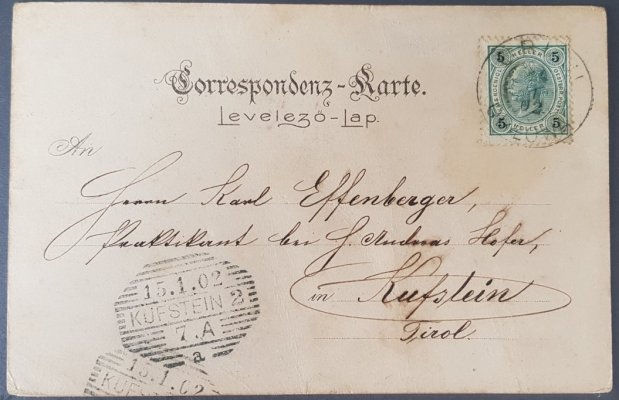 Correspondenz-Karte.
Levelező-Lap.
5 HELLER 5
5 HELLER 5
02
An
Herrn Karl Effenberger,
Praktikant bei H. Andreas Hofer,
in Kufstein
Tirol.
15.1.02
KUFSTEIN 2
7.A
a
15.1.02
KUF